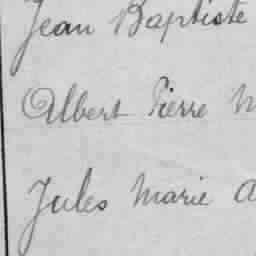 Jean Baptiste
Albert Pierre M
Jules Marie A